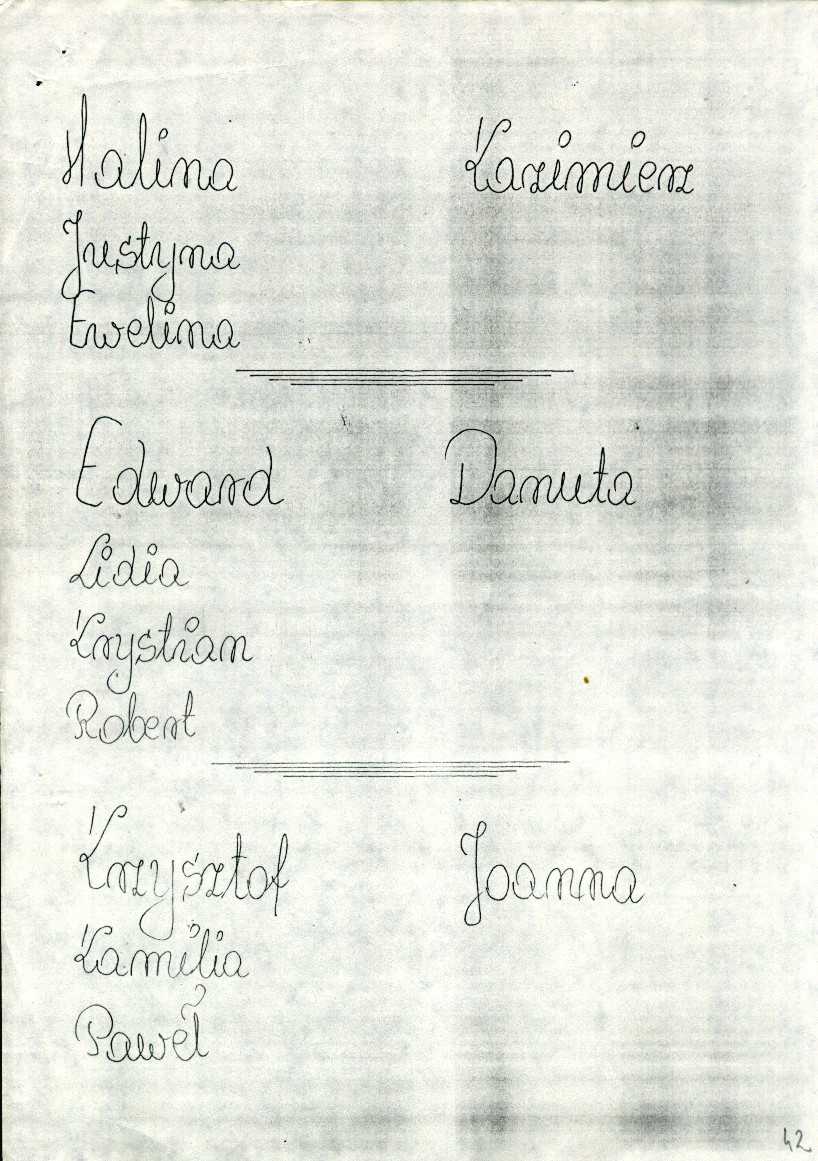 Halina Kazimierz
Justyna
Ewelina
Edward Danuta
Lidia
Krystian
Robert
Krzysztof Joanna
Kamilia
Paweł
42